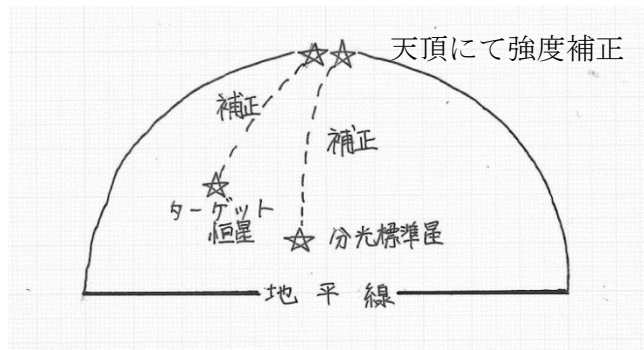 天頂にて強度補正
補正
補正
ターゲット
恒星
分光標準星
地平線